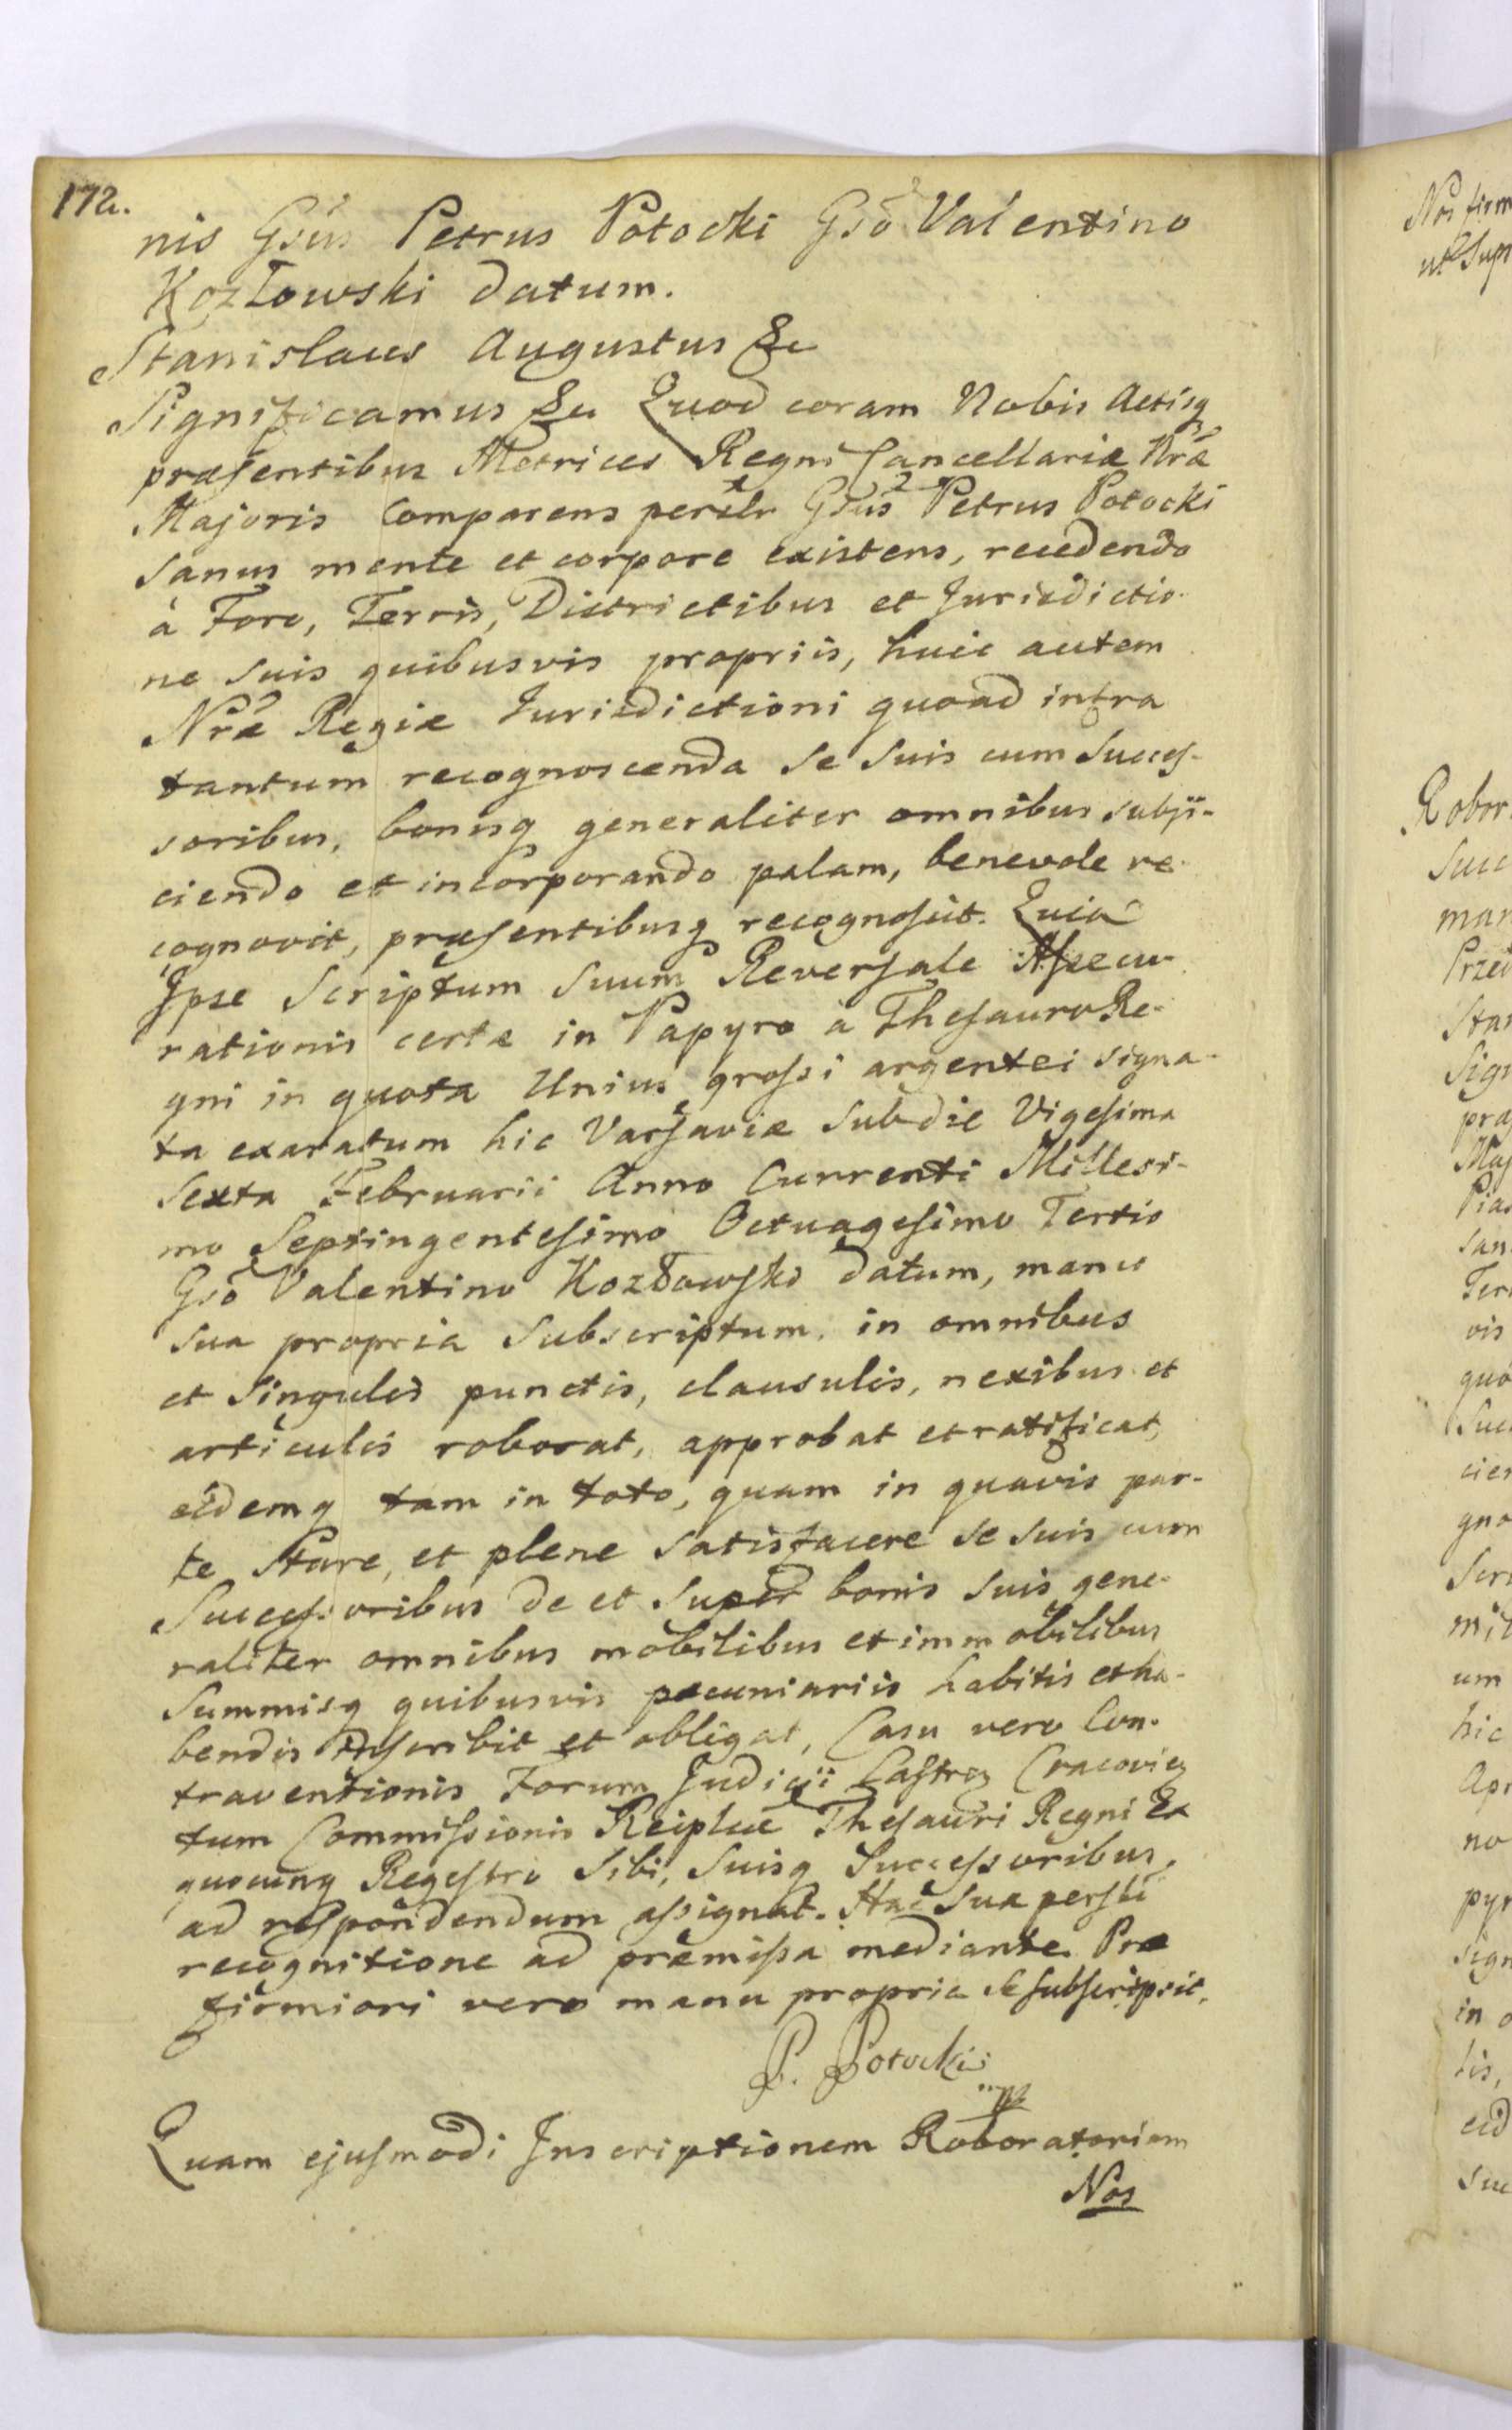 172.
nis Gsus Petrus Potocki Gso Valentino
Kozłowski datum.
Stanislaus Augustus &c
Significamus &c Quod coram Nobis Actisq
præsentibus Metrices Regni Cancellariæ Nræ
Majoris Comparens perilr Gsus Petrus Potocki
sanus mente et corpore existens, recedendo
à Foro, Terris, Districtibus et Jurisdictio-
ne suis quibusvis propriis, huic autem
Nræ Regiæ Jurisdictioni quoad infra
tantum recognoscenda se suis cum succes-
soribus, bonisq generaliter omnibus subjï-
ciendo et incorporando palam, benevole re-
cognovit, præsentibusq recognoscit. Quia
Ipse Scriptum suum Reversale Assecu-
rationis certæ in Papyro a Thesauro Re-
gni in quota Unius grossi argentei signa-
ta exaratum hic Varsaviæ sub die Vigesima
Sexta Februarii Anno Currenti Millesi-
mo Septingentesimo Octuagesimo Tertio
Gso Valentino Kozłowski datum, manu
sua propria subscriptum, in omnibus
et singulis punctis, clausulis, nexibus et
articulis roborat, approbat et ratificat,
eidemq tam in toto, quam in quavis par-
te stare, et plene satisfacere se suis cum
Successoribus de et super bonis suis gene-
raliter omnibus mobilibus et immobilibus
Summisq quibusvis pecuniariis habitis et ha-
bendis inscribit et obligat, Casu vero Con-
traventionis Forum Judicii Castren Cracovien
tum Commissionis Reiplcæ Thesauri Regni Ex
quocunq Regestro Sibi, Suisq Successoribus,
ad respondendum assignat. Hac sua persli
recognitione ad præmissa mediante. Pro
firmiori vero manu propria se subscripsit.
P. Potocki
mp
Quam ejusmodi Inscriptionem Roboratoriam
Nos
Nos firm
ut Supr
Robor
Succ
man
Przed
Stan
Sign
præ
Maj
san
Ter
vis
quo
Suc
cien
gno
Scri
um
hic
Apr
no
pyr
sign
in o
tis,
eid
suc